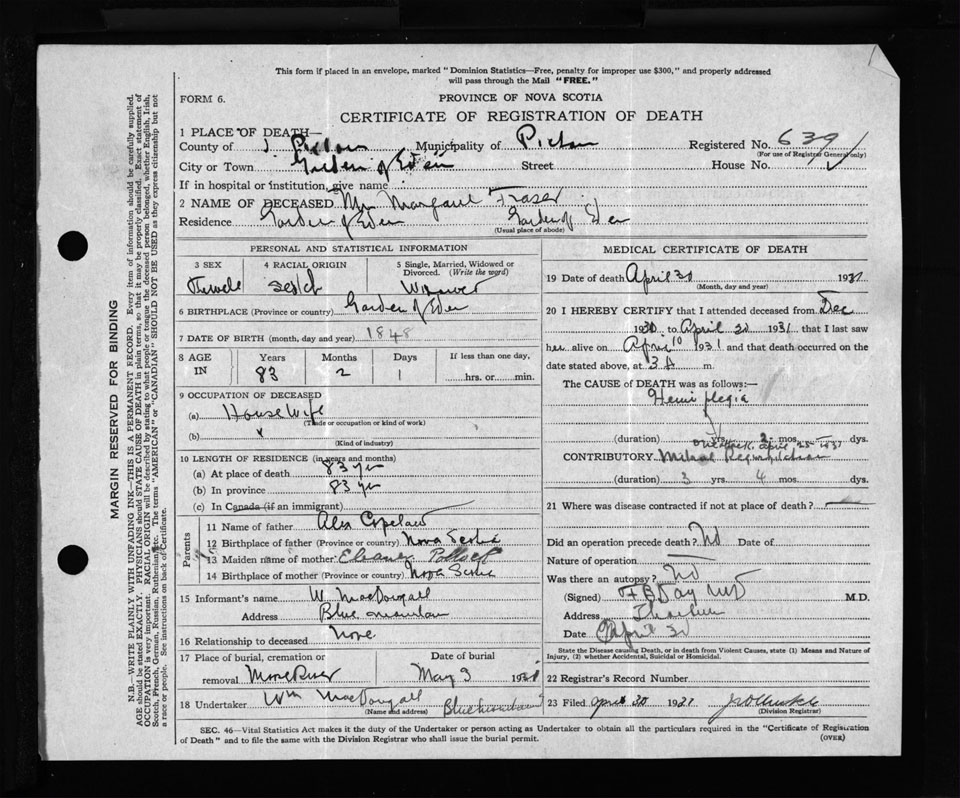 This form if placed in an envelope, marked "Dominion Statistics—Free, penalty for improper use $300," and properly addressed
will pass through the Mail "FREE."
FORM 6.
PROVINCE OF NOVA SCOTIA
CERTIFICATE OF REGISTRATION OF DEATH
1 PLACE OF DEATH—
County of Pictou Municipality of Pictou Registered No. 639
(For use of Registrar General only)
City or Town Garden of Eden Street House No.
If in hospital or institution, give name
2 NAME OF DECEASED Margaret Fraser
Residence Garden of Eden Garden of Eden
(Usual place of abode)
PERSONAL AND STATISTICAL INFORMATION
3 SEX 4 RACIAL ORIGIN 5 Single, Married, Widowed or
Divorced. (Write the word)
Female Scotch Widowed
6 BIRTHPLACE (Province or country) Garden of Eden
7 DATE OF BIRTH (month, day and year) 1848
8 AGE Years Months Days If less than one day,
IN 83 2 1 hrs. or min.
9 OCCUPATION OF DECEASED
(a) House Wife
(Trade or occupation or kind of work)
(b)
(Kind of industry)
10 LENGTH OF RESIDENCE (in years and months)
(a) At place of death 83 yr
(b) In province 83 yr
(c) In Canada (if an immigrant)
Parents
11 Name of father Alex Copeland
12 Birthplace of father (Province or country) Nova Scotia
13 Maiden name of mother Eleanor Pollock
14 Birthplace of mother (Province or country) Nova Scotia
15 Informant's name W. MacDougall
Address Blue Mountain
16 Relationship to deceased None
17 Place of burial, cremation or Date of burial
removal Moose River May 3 1931
18 Undertaker Wm MacDougall Blue Mountain
(Name and address)
MEDICAL CERTIFICATE OF DEATH
19 Date of death April 30 1931
(Month, day and year)
20 I HEREBY CERTIFY that I attended deceased from Dec
1930 to April 30 1931 that I last saw
her alive on April 10 1931 and that death occurred on the
date stated above, at 3 m.
The CAUSE of DEATH was as follows:
Hemiplegia
(duration) yrs. 2 mos. dys.
April 25 1931
CONTRIBUTORY Mitral Regurgitation
(duration) 3 yrs 4 mos. dys.
21 Where was disease contracted if not at place of death?
Did an operation precede death? No Date of
Nature of operation
Was there an autopsy? No
(Signed) F B Day MD M.D.
Address Thorburn
Date April 30
State the Disease causing Death, or in death from Violent Causes, state (1) Means and Nature of
Injury, (2) whether Accidental, Suicidal or Homicidal.
22 Registrar's Record Number
23 Filed April 30 1931
(Division Registrar)
SEC. 46—Vital Statistics Act makes it the duty of the Undertaker or person acting as Undertaker to obtain all the particulars required in the "Certificate of Registration
of Death" and to file the same with the Division Registrar who shall issue the burial permit. (OVER)
MARGIN RESERVED FOR BINDING
N.B.—WRITE PLAINLY WITH UNFADING INK—THIS IS A PERMANENT RECORD. Every item of information should be carefully supplied.
AGE should be stated EXACTLY. PHYSICIANS should STATE CAUSE OF DEATH in plain terms, so that it may be properly classified. Exact statement of
OCCUPATION is very important. RACIAL ORIGIN will be described by stating to what people or tongue the deceased person belonged, whether English, Irish,
Scotch, French, German, Russian, Ruthenian, etc. The terms "AMERICAN" or "CANADIAN" SHOULD NOT BE USED as they express citizenship but not
a race or people. See instructions on back of Certificate.